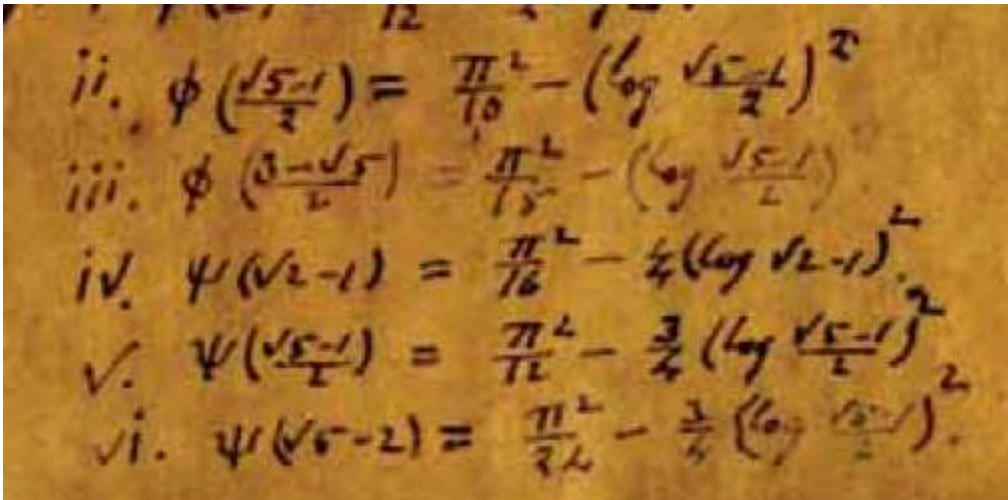 ii. φ(√5-1/2) = π²/10 - (log √5-1/2)²
iii. φ(3-√5/2) = π²/15 - (log √5-1/2)
iv. ψ(√2-1) = π²/16 - 1/4(log √2-1)².
v. ψ(√5-1/2) = π²/12 - 3/4(log √5-1/2)²
vi. ψ(√5-2) = π²/24 - 3/4(log √5-1/2)².